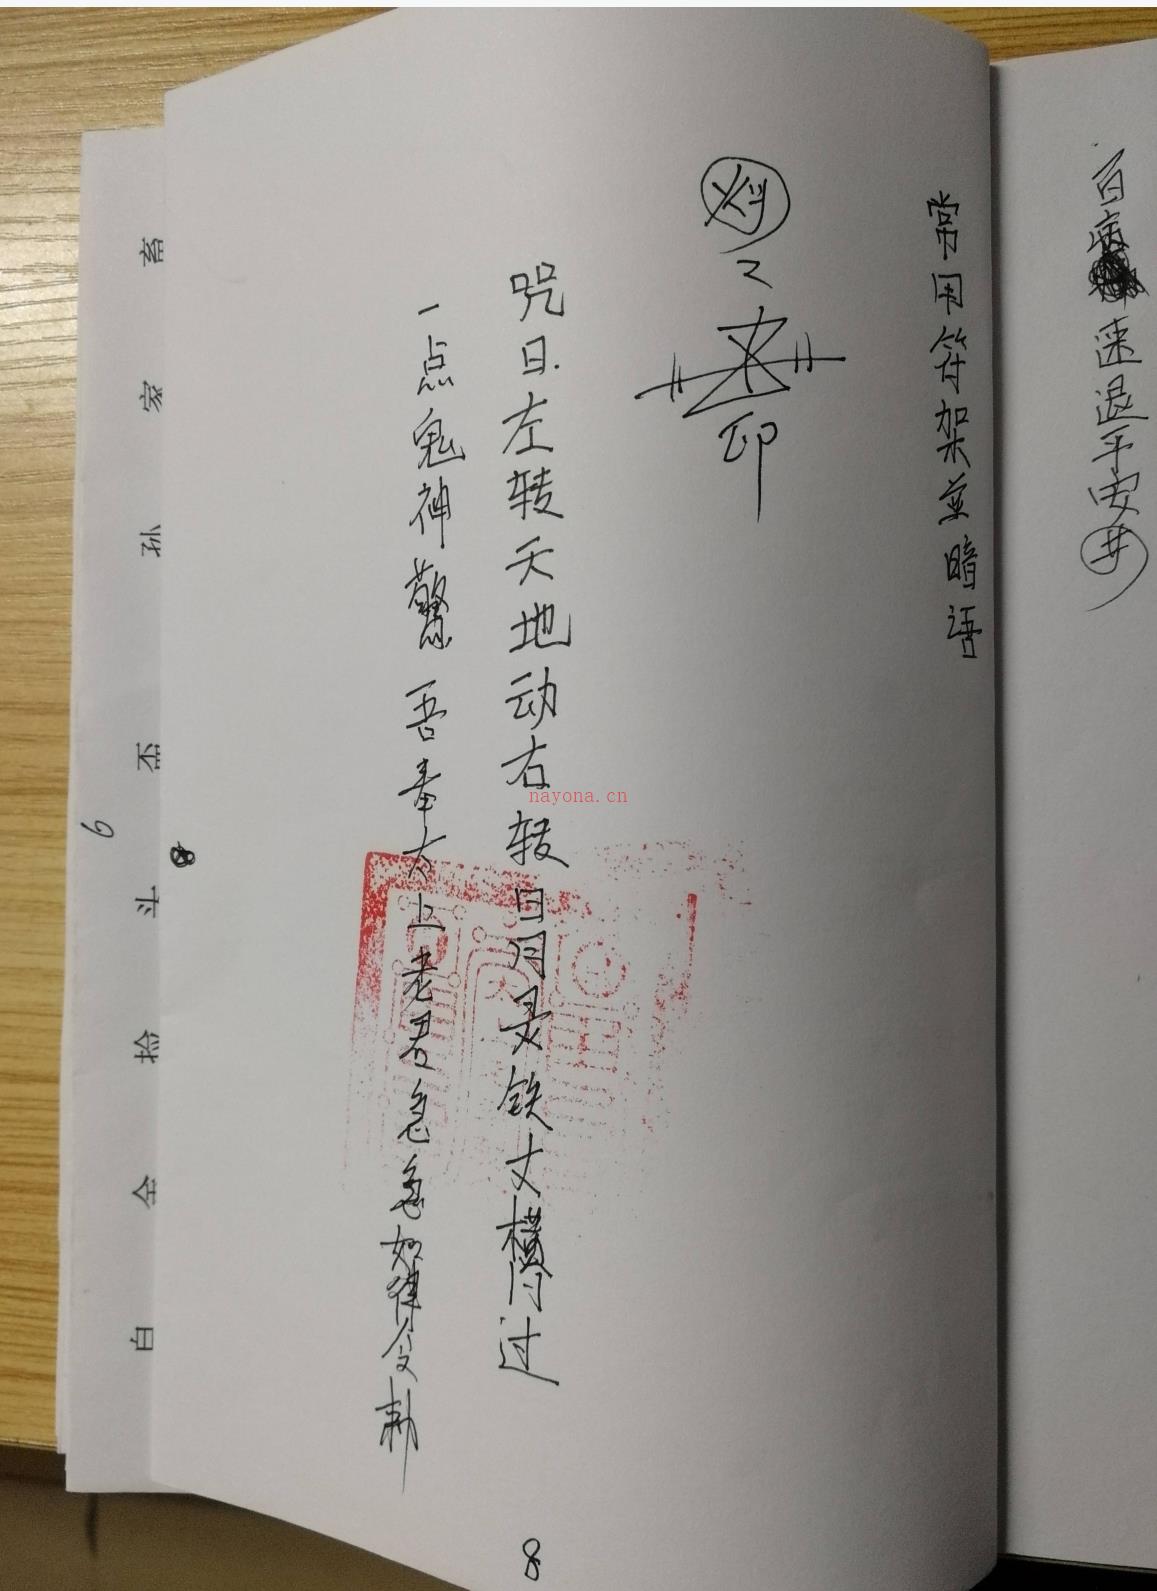 百病速退平安井
常用符架並暗语
印
咒曰左转天地动右转日月灵铁丈横门过
一点鬼神驚吾奉太上老君急急如律令勅
8
nayona.cn
8
畜
家
孙
丕
斗
捡
全
白
6